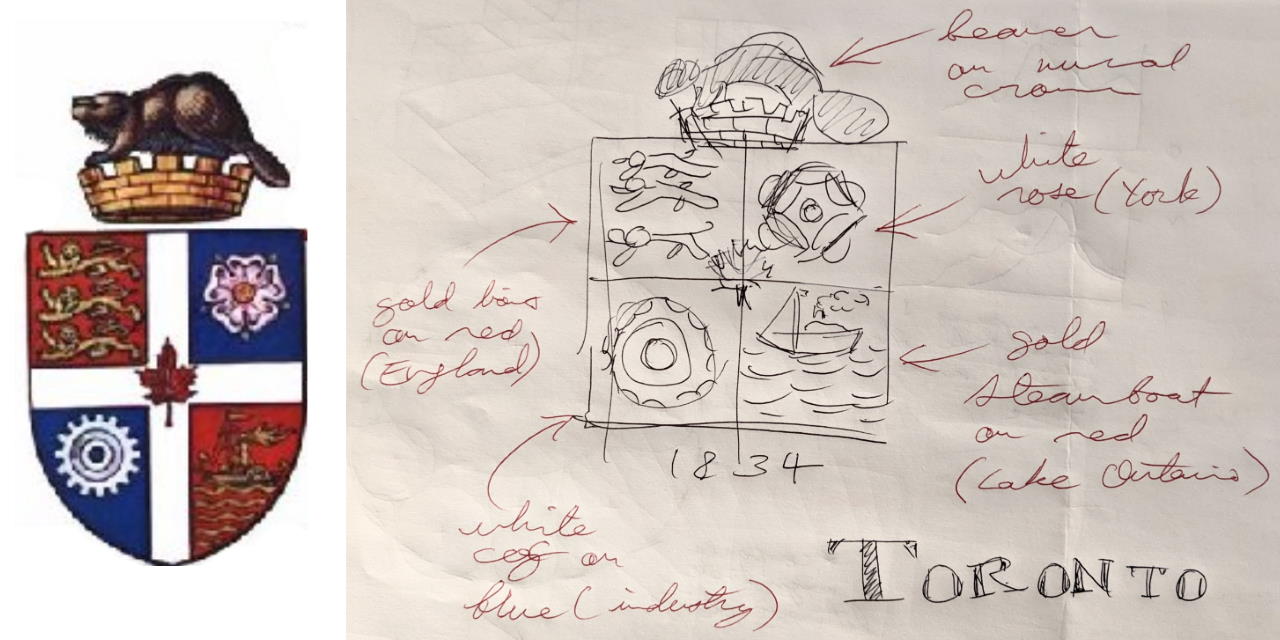 beaver
on mural
crown
white
rose (York)
gold lions
on red
(England)
gold
steamboat
on red
(Lake Ontario)
1834
white
cog on
blue (industry)
TORONTO